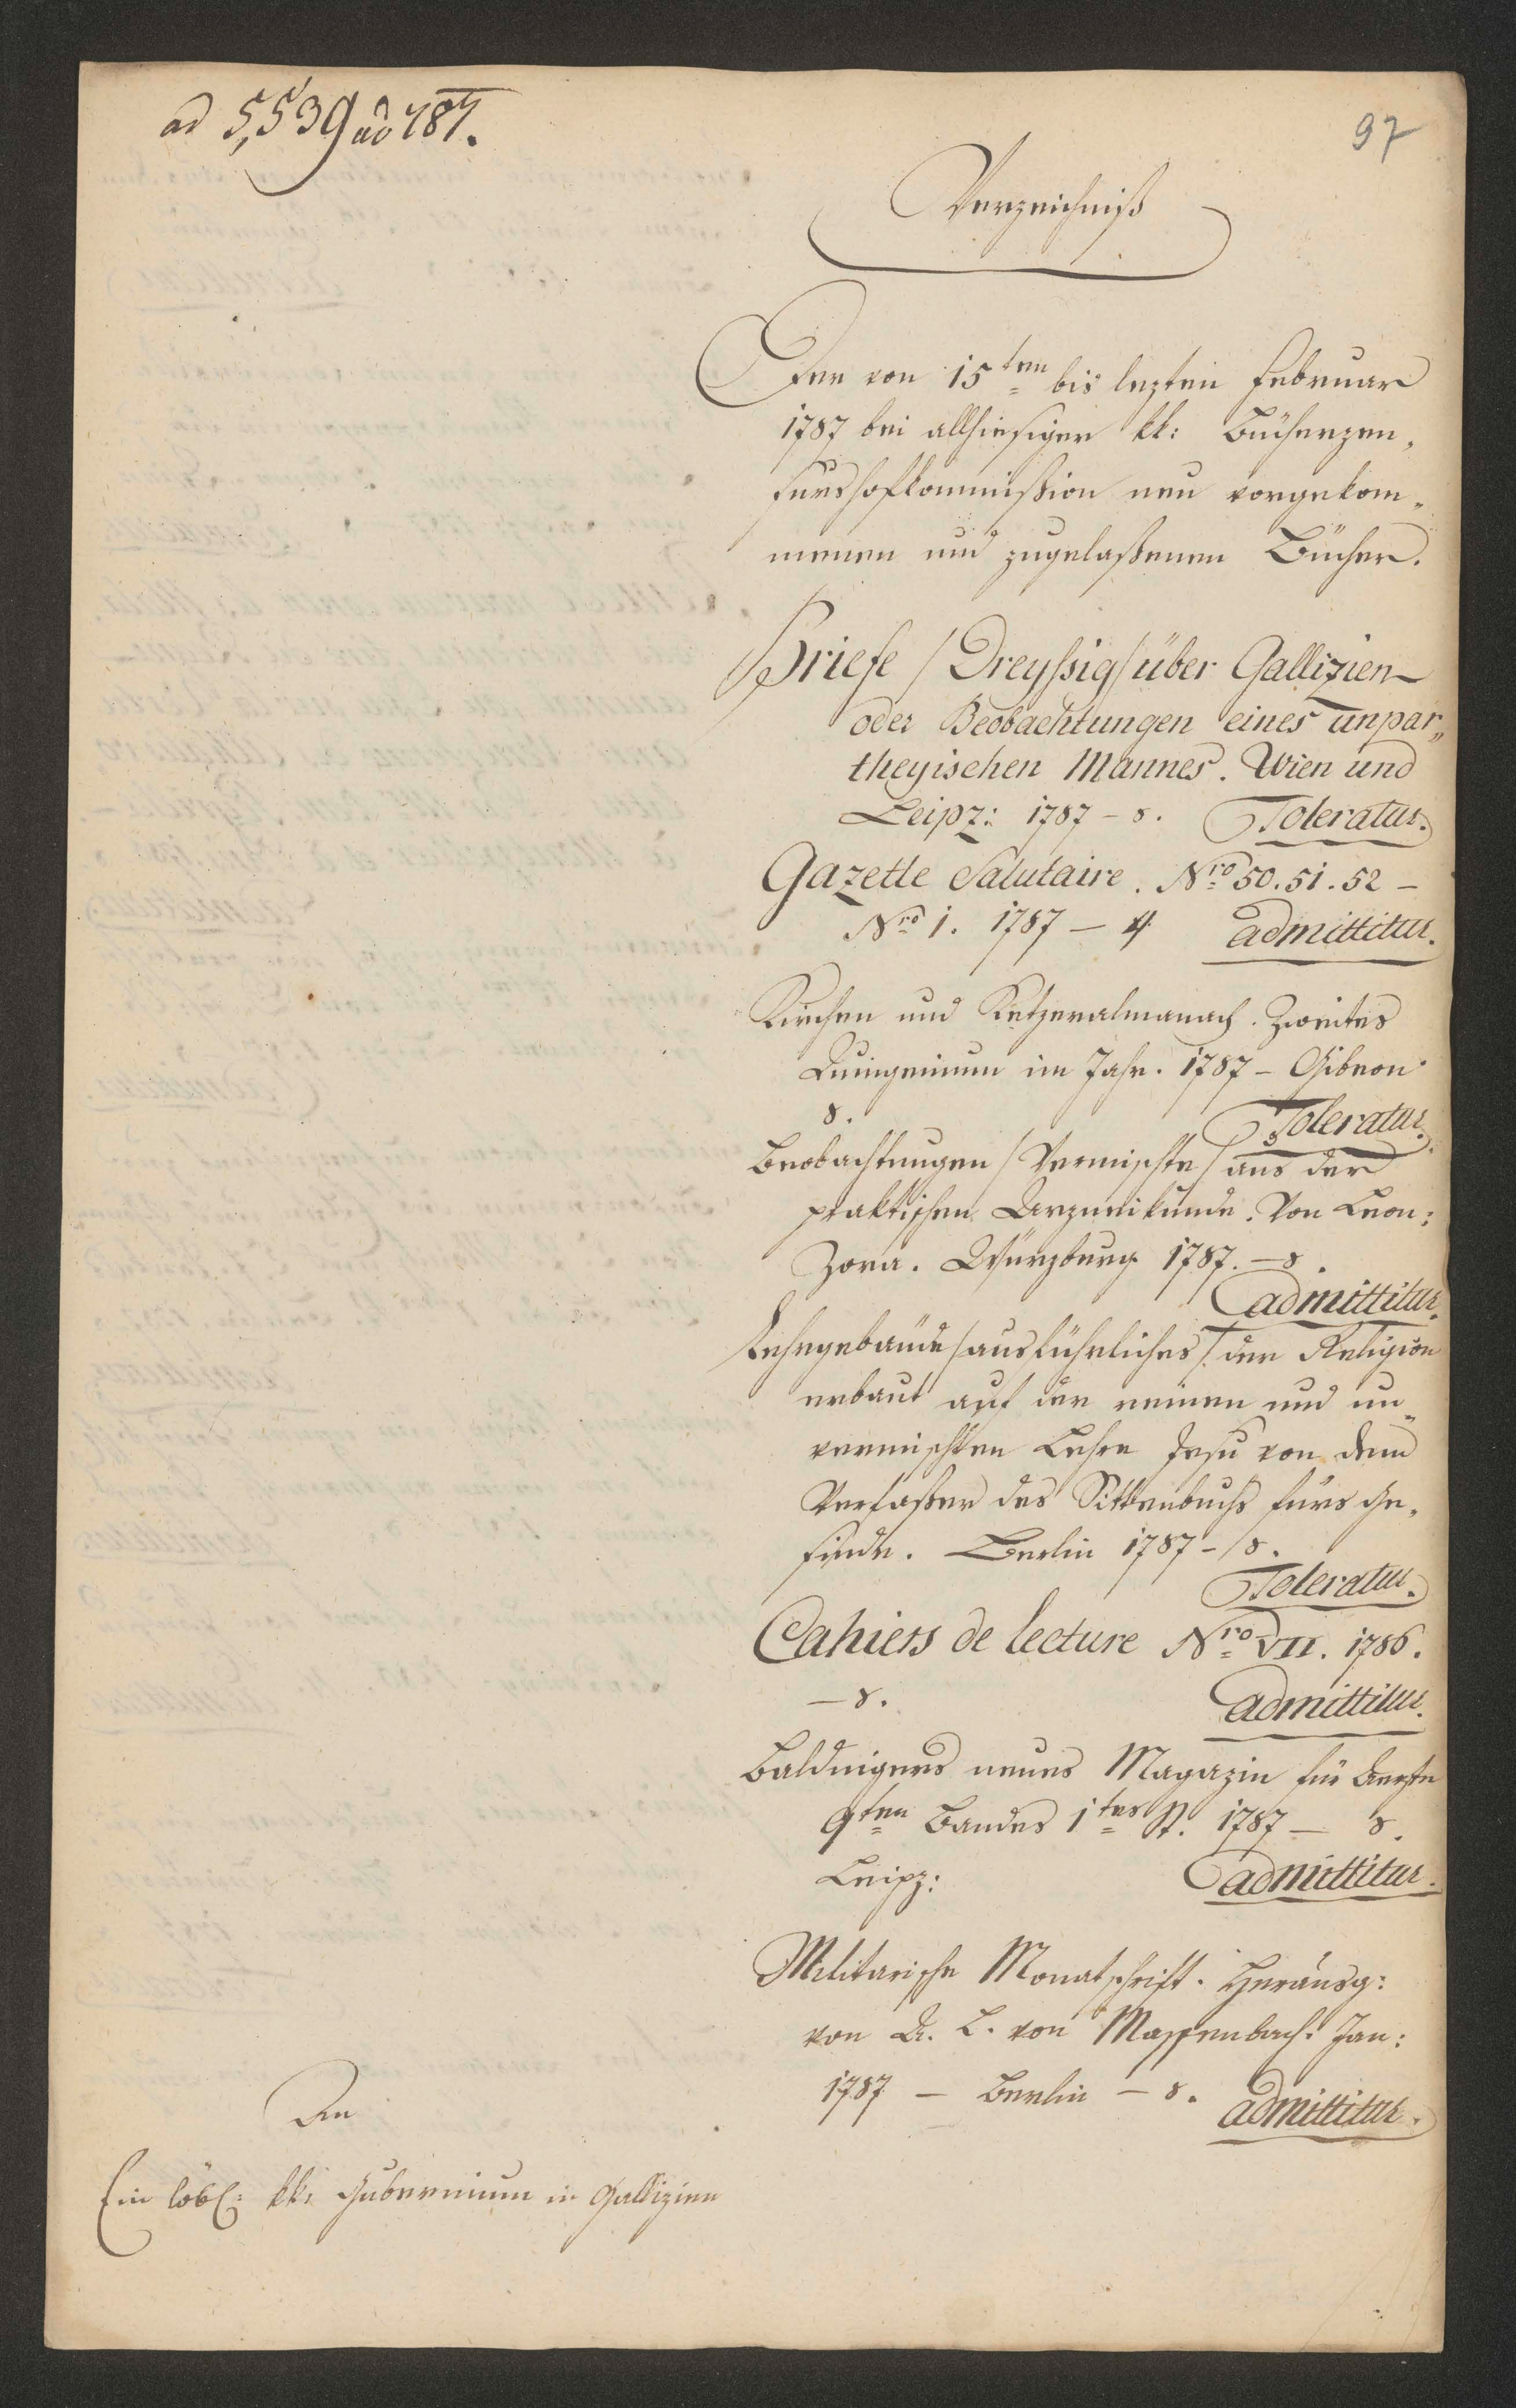 ad 5,539 ao 787.
97
Verzeichniß
Der von 15ten bis lezten Februar
1787 bei allhiesiger kk: Bücherzen„
surshofkommißion neu vorgekom„
menen und zugelaßenen Bücher.
Briefe /Dreyßig/ über Gallizien
oder Beobachtungen eines unpar„
theyischen Mannes. Wien und
Leipz: 1787 – 8. Toleratur.
Gazette Salutaire. Nro 50. 51. 52 –
Nro 1. 1787 – 4 admittitur.
Kirchen und Ketzeralmanach. Zweites
Quingenium im Jahr. 1787 – Gibeon
8. Toleratur.
Beobachtungen /Vermischte/ aus der
praktischen Arzneikunde. Von
Würzburg 1787. – 8.
admittitur.
Lehrgebäude /ausführliches/ der Religion
erbaut auf der reinen und un„
vermischten Lehre Jesu von dem
Verfaßer des Sittenbuchs fürs Ge„
sinde. Berlin 1787 – 8.
Toleratur.
Cahiers de lecture Nro VII. 1786.
– 8. admittitur.
Baldingers neues Magazin für Aerzte
9ten Bandes 1tes St. 1787 – 8.
Leipz: admittitur.
Militarische Monatschrift. Herausg:
von A. L. von Massenbach. Jan:
1787 – Berlin – 8. admittitur.
An
Ein löbl: kk: Gubernium in Gallizien